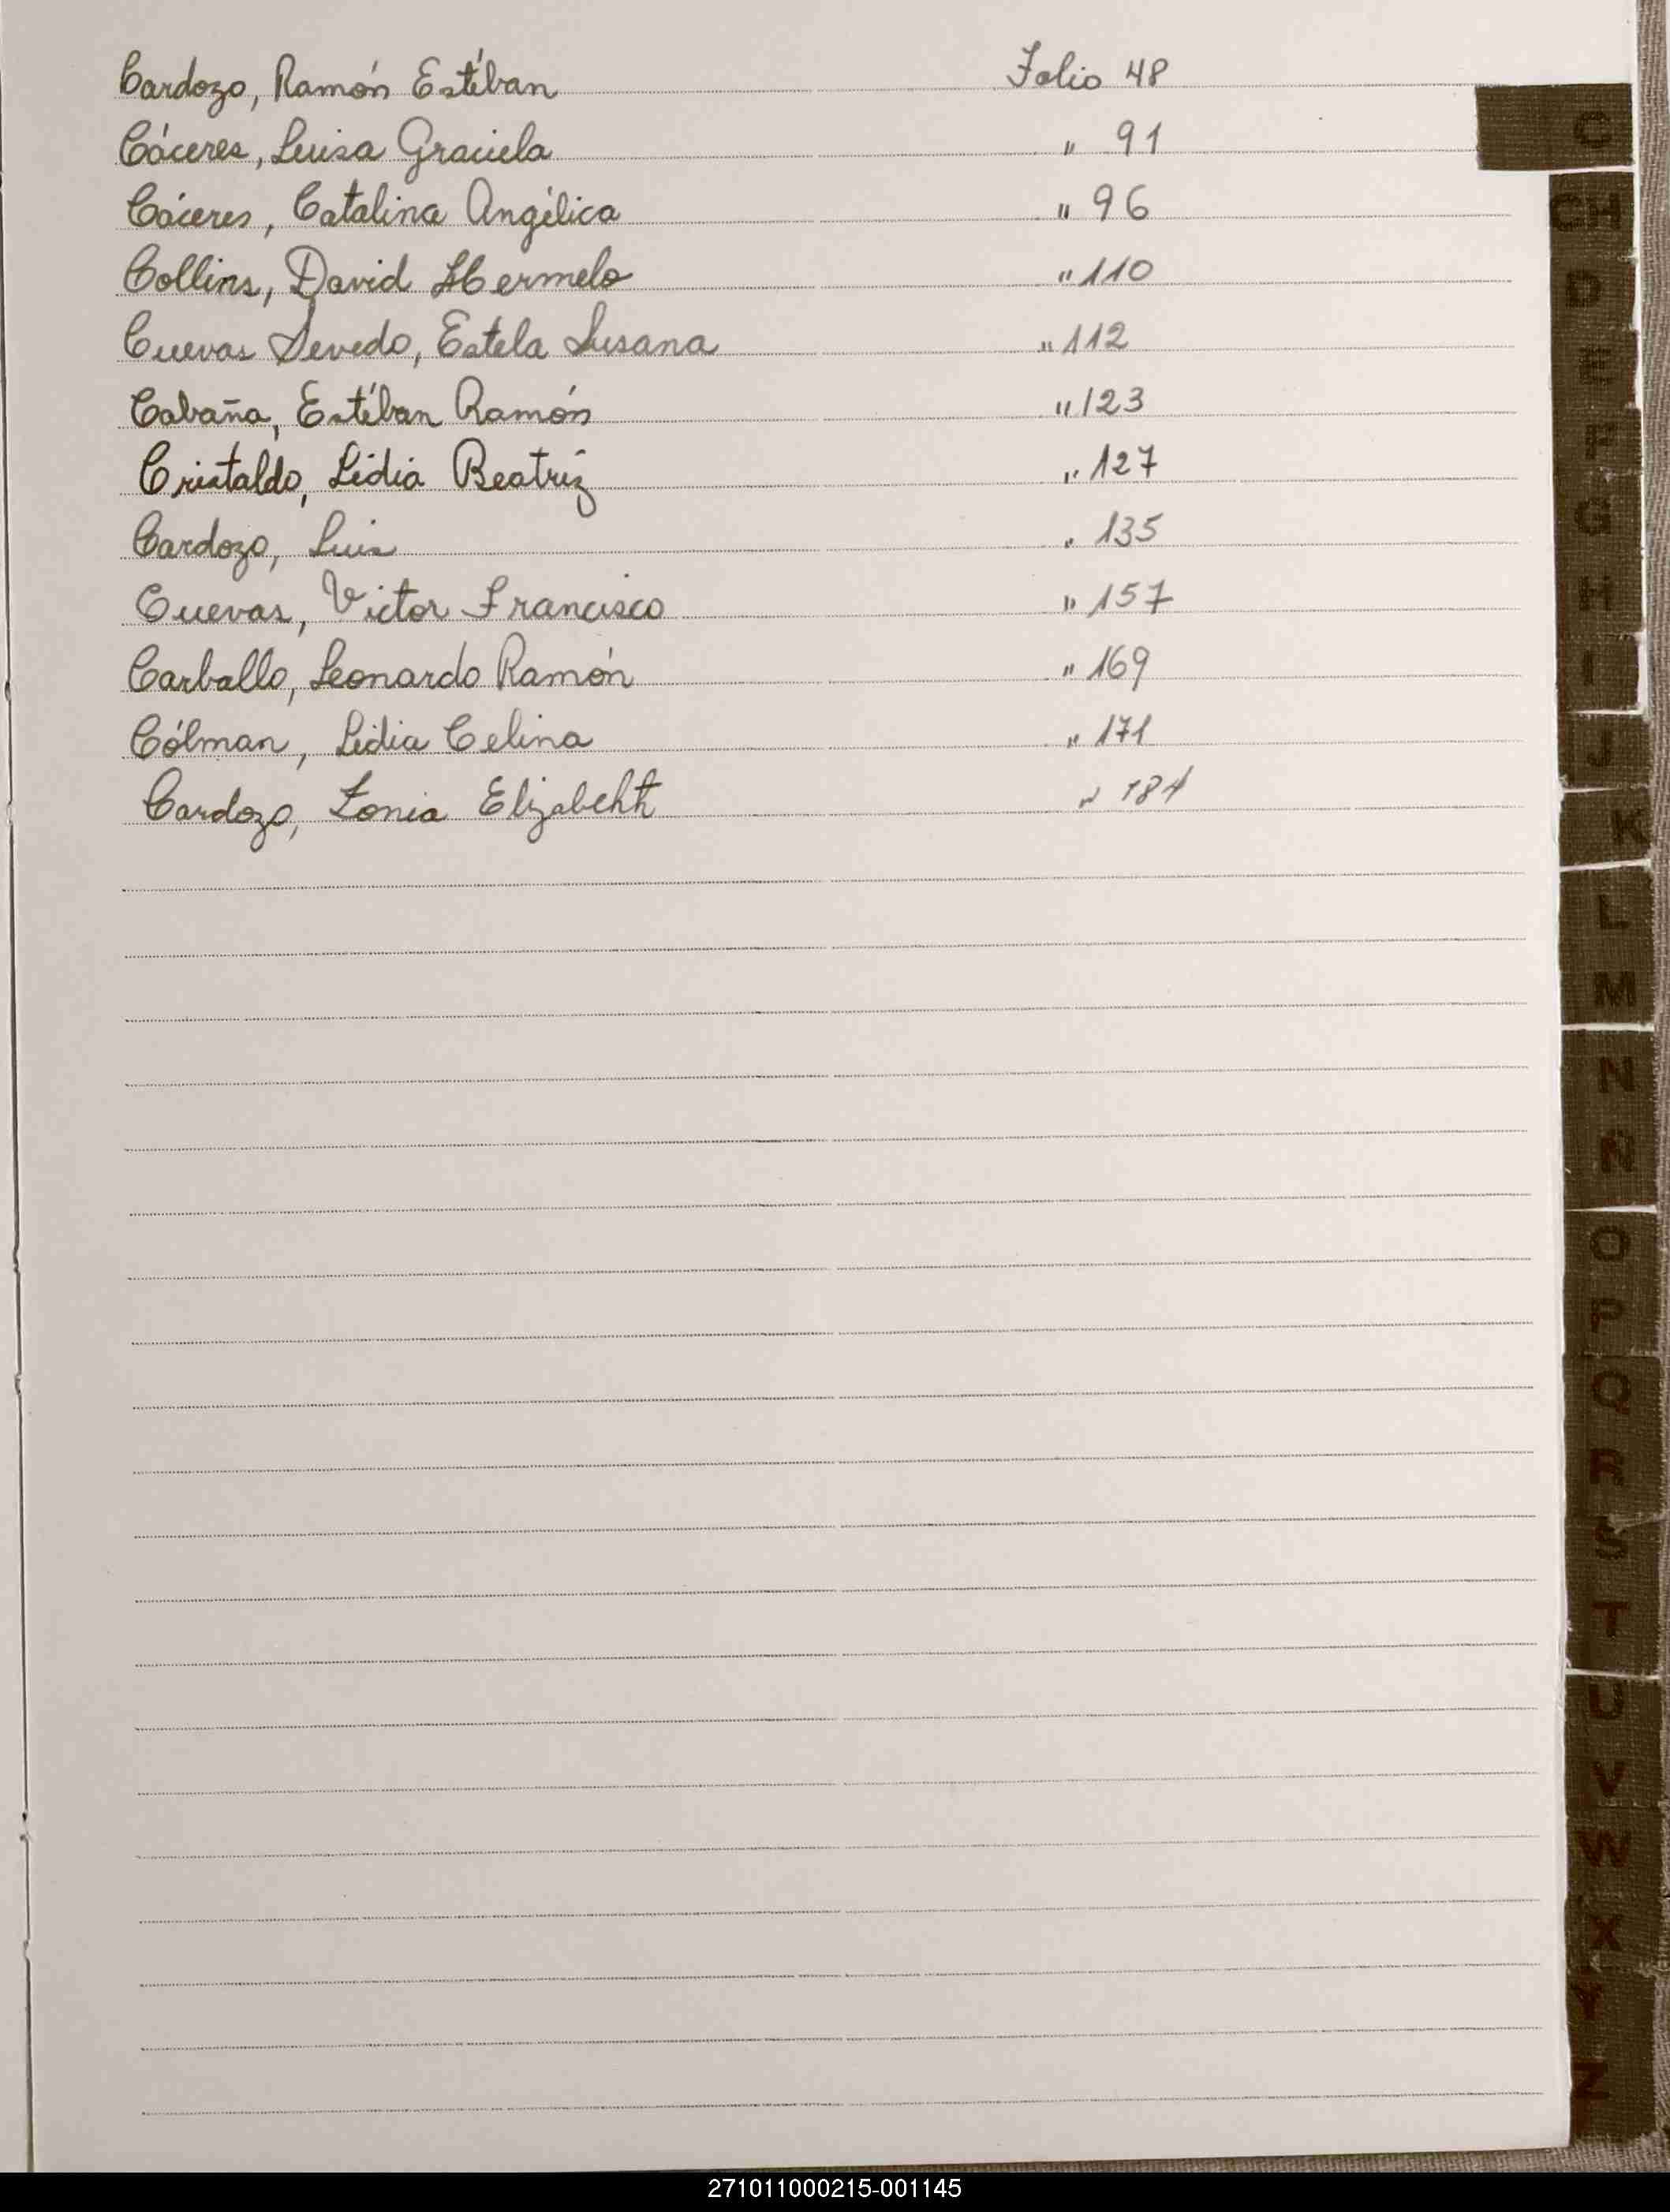 Cardozo, Ramón Estéban Folio 48
Cáceres, Luisa Graciela " 91
Cáceres, Catalina Angélica " 96
Collins, David Hermelo " 110
Cuevas Sevedo, Estela Susana " 112
Cabaña, Estéban Ramón " 123
Cristaldo, Lidia Beatriz " 127
Cardozo, Luis " 135
Cuevas, Victor Francisco " 157
Carballo, Leonardo Ramón " 169
Cólman, Lidia Celina " 171
Cardozo, Zonia Elizabeht " 184
C
CH
D
E
F
G
H
I
J
K
L
M
N
Ñ
O
P
Q
R
S
T
U
V
W
X
Y
Z
271011000215-001145